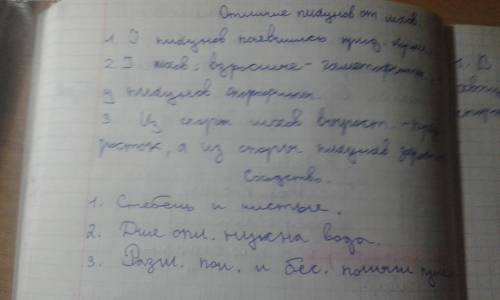 Отличие плаунов от мхов
1. У плаунов появились прид. корни.
2 У мхов: взрослые - гаметофиты,
у плаунов спорофиты.
3 Из споры мхов вырост. - пред
росток, а из споры плаунов зарост
Сходство.
1. Стебель и листья.
2. Для опл. нужна вода.
3. Разм. пол. и бес. полым